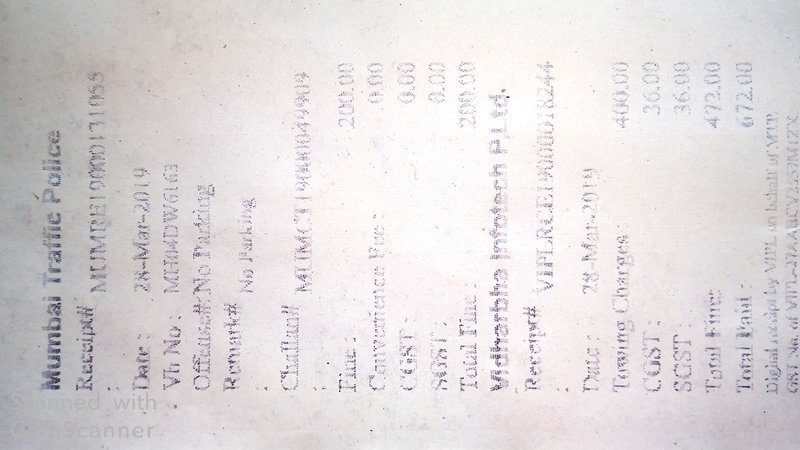 Mumbai Traffic Police
Receipt# MUMDRE19000131055
:
Date : 28-Mar-2019
Vh No : MH04DW6163
Offense#: No Parking
Remark# No Parking
:
Challan# MUMCT19000049909
:
Fine : 200.00
Convenience Fee : 0.00
CGST : 0.00
SGST : 0.00
Total Fine : 200.00
Vidharbha Infotech P.Ltd.
Receipt# VIPLRCE19000018244
:
Date : 28-Mar-2019
Towing Charges : 400.00
CGST : 36.00
SGST : 36.00
Total Fine: 472.00
Total Paid : 672.00
Digital receipt by VIPL on behalf of MTP.
GST No. of VIPL-
Scanned with
CamScanner